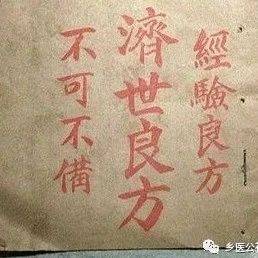 經驗良方
濟世良方
不可不備
乡医公社